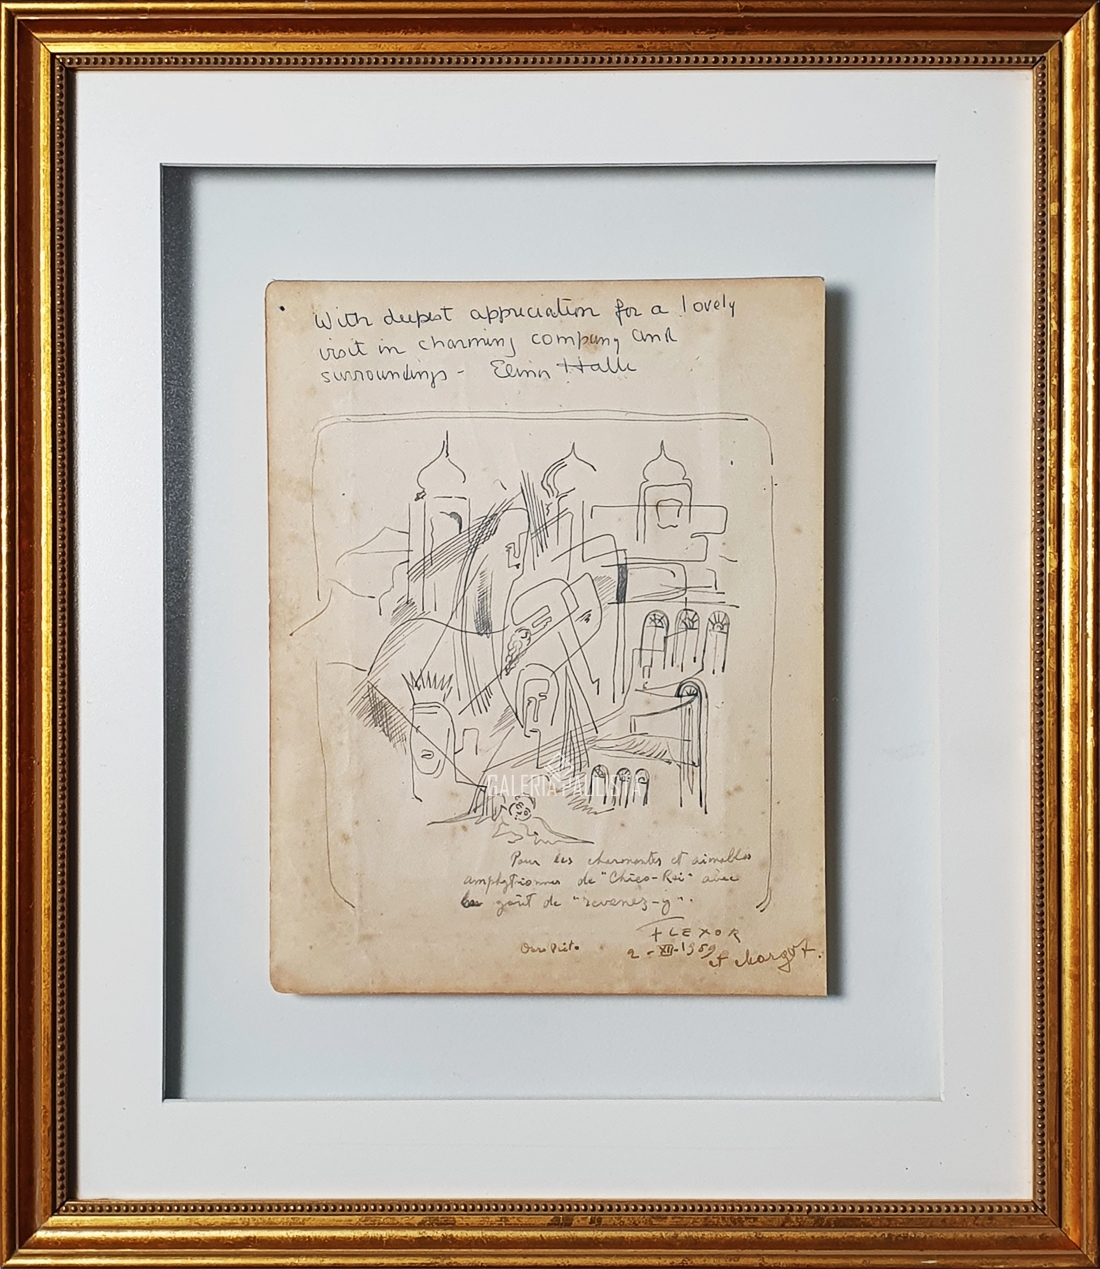 With deepest appreciation for a lovely
visit in charming company and
surroundings - Halle
GALERIA PAULISTA
Pour les charmantes et aimables
amphytrionnes de "Chico-Rei" avec
le goût de "revenez-y".
FLEXOR
Ouro Preto
2-XII-1959
et Margot.